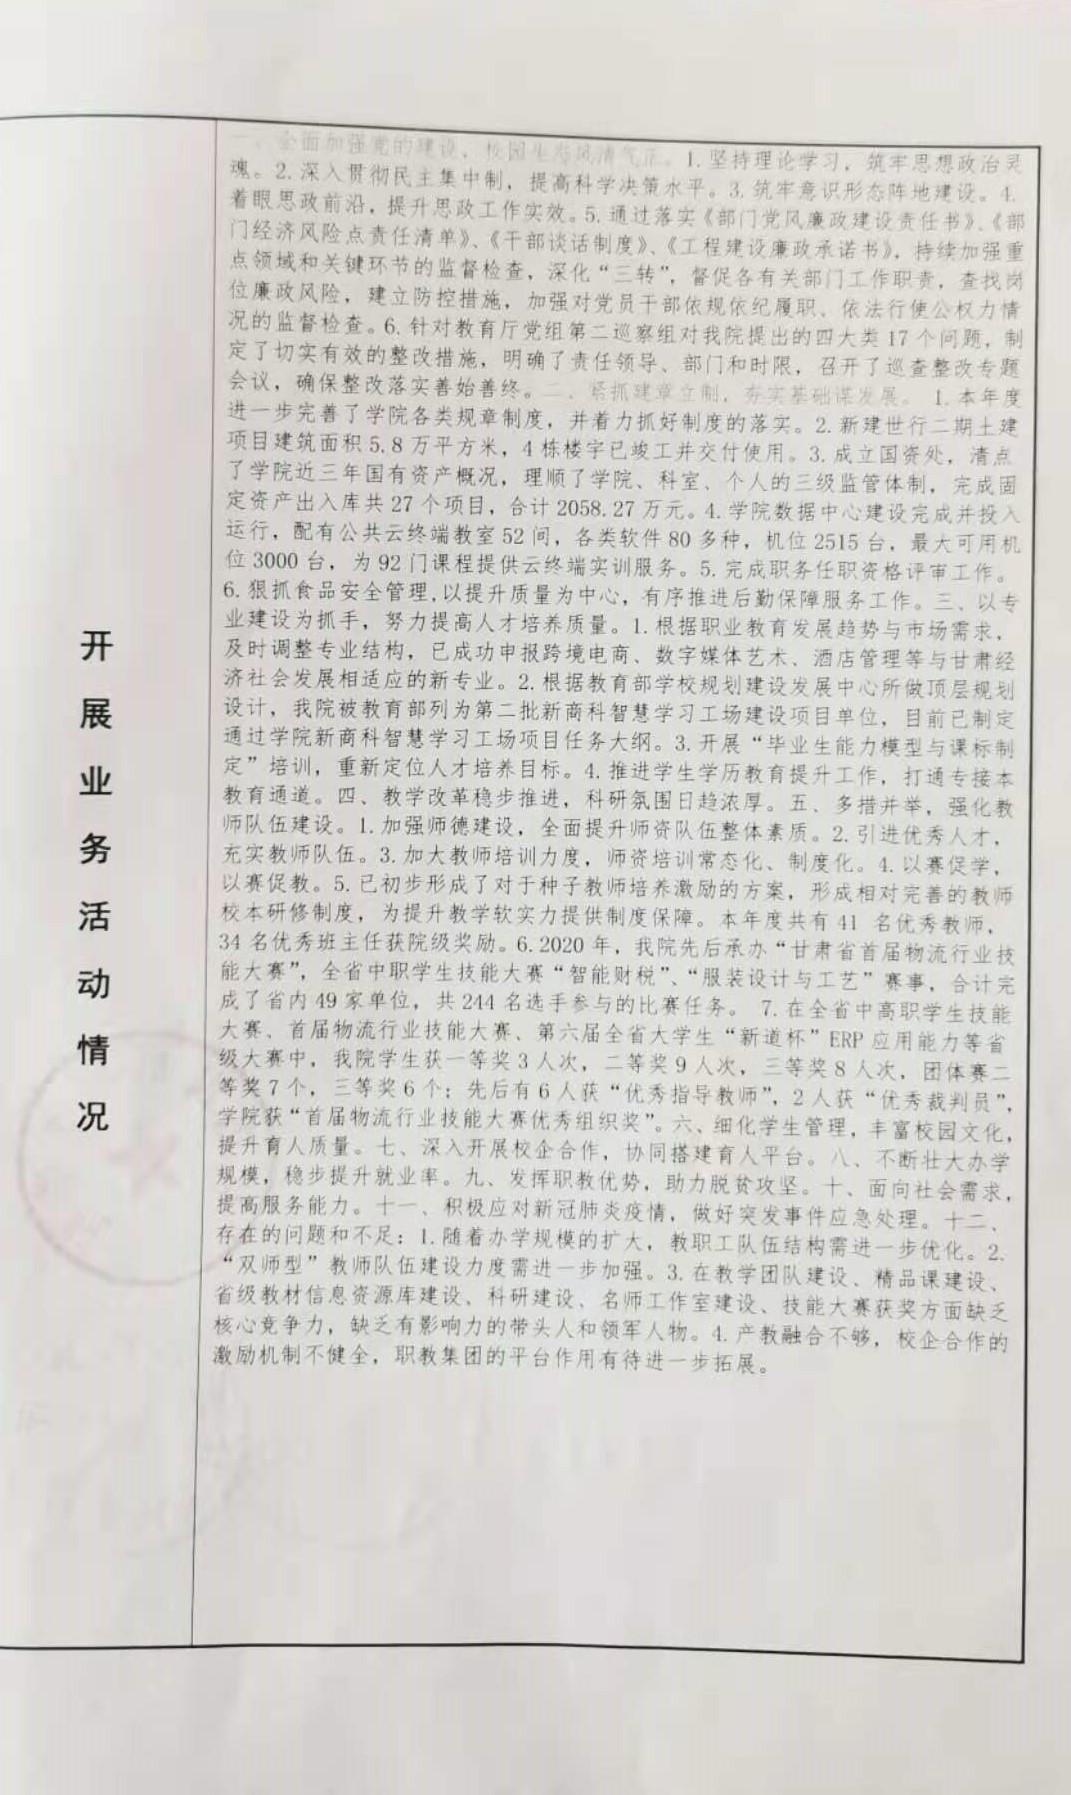 开展业务活动情况
一、全面加强党的建设，校园生态风清气正。1.坚持理论学习，筑牢思想政治灵
魂。2.深入贯彻民主集中制，提高科学决策水平。3.筑牢意识形态阵地建设。4.
着眼思政前沿，提升思政工作实效。5.通过落实《部门党风廉政建设责任书》、《部
门经济风险点责任清单》、《干部谈话制度》、《工程建设廉政承诺书》，持续加强重
点领域和关键环节的监督检查，深化“三转”，督促各有关部门工作职责，查找岗
位廉政风险，建立防控措施，加强对党员干部依规依纪履职、依法行使公权力情
况的监督检查。6.针对教育厅党组第二巡察组对我院提出的四大类17个问题，制
定了切实有效的整改措施，明确了责任领导、部门和时限，召开了巡查整改专题
会议，确保整改落实善始善终。二、紧抓建章立制，夯实基础谋发展。 1.本年度
进一步完善了学院各类规章制度，并着力抓好制度的落实。2.新建世行二期土建
项目建筑面积5.8万平方米，4栋楼宇已竣工并交付使用。3.成立国资处，清点
了学院近三年国有资产概况，理顺了学院、科室、个人的三级监管体制，完成固
定资产出入库共27个项目，合计2058.27万元。4.学院数据中心建设完成并投入
运行，配有公共云终端教室52间，各类软件80多种，机位2515台，最大可用机
位3000台，为92门课程提供云终端实训服务。5.完成职务任职资格评审工作。
6.狠抓食品安全管理,以提升质量为中心，有序推进后勤保障服务工作。三、以专
业建设为抓手，努力提高人才培养质量。1.根据职业教育发展趋势与市场需求，
及时调整专业结构，已成功申报跨境电商、数字媒体艺术、酒店管理等与甘肃经
济社会发展相适应的新专业。2.根据教育部学校规划建设发展中心所做顶层规划
设计，我院被教育部列为第二批新商科智慧学习工场建设项目单位，目前已制定
通过学院新商科智慧学习工场项目任务大纲。3.开展“毕业生能力模型与课标制
定”培训，重新定位人才培养目标。4.推进学生学历教育提升工作，打通专接本
教育通道。四、教学改革稳步推进，科研氛围日趋浓厚。五、多措并举，强化教
师队伍建设。1.加强师德建设，全面提升师资队伍整体素质。2.引进优秀人才，
充实教师队伍。3.加大教师培训力度，师资培训常态化、制度化。4.以赛促学，
以赛促教。5.已初步形成了对于种子教师培养激励的方案，形成相对完善的教师
校本研修制度，为提升教学软实力提供制度保障。本年度共有41 名优秀教师，
34名优秀班主任获院级奖励。6.2020年，我院先后承办“甘肃省首届物流行业技
能大赛”，全省中职学生技能大赛“智能财税”、“服装设计与工艺”赛事，合计完
成了省内49家单位，共244名选手参与的比赛任务。 7.在全省中高职学生技能
大赛、首届物流行业技能大赛、第六届全省大学生“新道杯”ERP应用能力等省
级大赛中，我院学生获一等奖3人次，二等奖9人次，三等奖8人次，团体赛二
等奖7个，三等奖6个；先后有6人获“优秀指导教师”，2人获“优秀裁判员”，
学院获“首届物流行业技能大赛优秀组织奖”。六、细化学生管理，丰富校园文化，
提升育人质量。七、深入开展校企合作，协同搭建育人平台。八、不断壮大办学
规模，稳步提升就业率。九、发挥职教优势，助力脱贫攻坚。十、面向社会需求，
提高服务能力。十一、积极应对新冠肺炎疫情，做好突发事件应急处理。十二、
存在的问题和不足：1.随着办学规模的扩大，教职工队伍结构需进一步优化。2.
“双师型”教师队伍建设力度需进一步加强。3.在教学团队建设、精品课建设、
省级教材信息资源库建设、科研建设、名师工作室建设、技能大赛获奖方面缺乏
核心竞争力，缺乏有影响力的带头人和领军人物。4.产教融合不够，校企合作的
激励机制不健全，职教集团的平台作用有待进一步拓展。